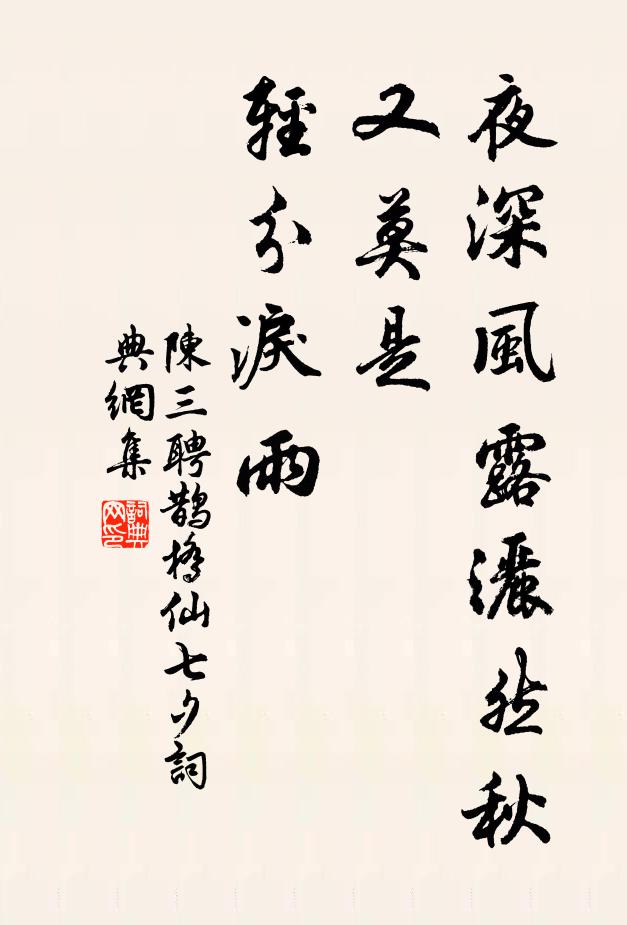 夜深風露灑然秋
又莫是
輕分淚雨
陳三聘鵲橋仙七夕詞
典網集
詞典网印